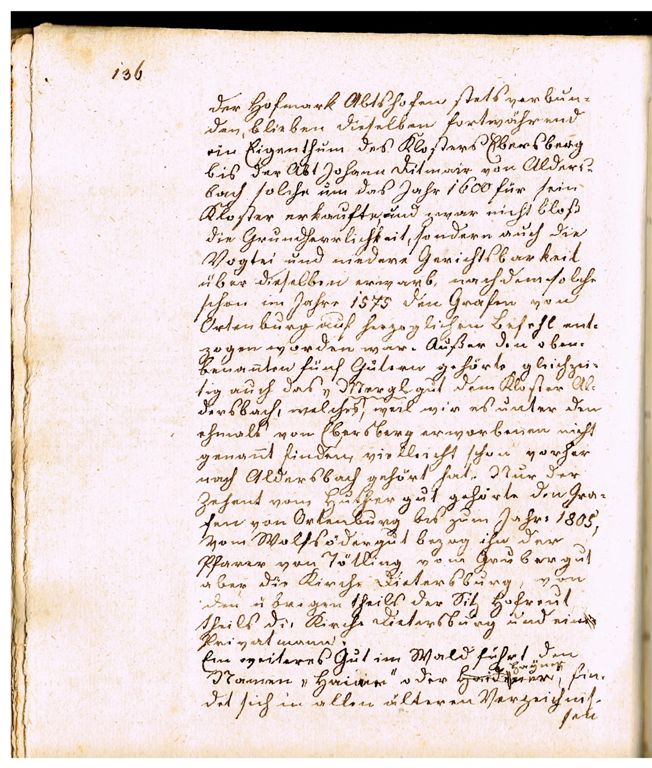 136
der Hofmark Abtshofen stets verbun-
den, blieben dieselben fortwährend
ein Eigenthum des Klosters Ebersberg
bis der Abt Johann Ditmair von Alders-
bach solche um das Jahr 1600 für sein
Kloster erkaufte, und zwar nicht bloß
die Grundherrlichkeit, sondern auch die
Vogtei und niedere Gerichtsbarkeit
über dieselben erwarb, nachdem solche
schon im Jahre 1575 den Grafen von
Ortenburg auf herzoglichen Befehl ent-
zogen worden war. Außer den oben-
benannten fünf Gütern gehörte gleichzei-
tig auch das Mergl gut dem Kloster Al-
dersbach, welches, weil wir es unter den
ehmals von Ebersberg erworbenen nicht
genannt finden, vielleicht schon vorher
nach Aldersbach gehört hat. Nur der
Zehent vom Huther gut gehörte den Gra-
fen von Ortenburg bis zum Jahre 1805,
vom Wolfsödergut bezog ihn der
Pfarer von Tötling vom Grubergut
aber die Kirche Dietersburg, von
den übrigen theils der Sitz Hofreut
theils die Kirche Dietersburg und ein
Privatmann.
Ein weiteres Gut im Wald führt den
Namen „Hainer" oder Hayner, fin-
det sich in allen älteren Verzeichnis-
sen